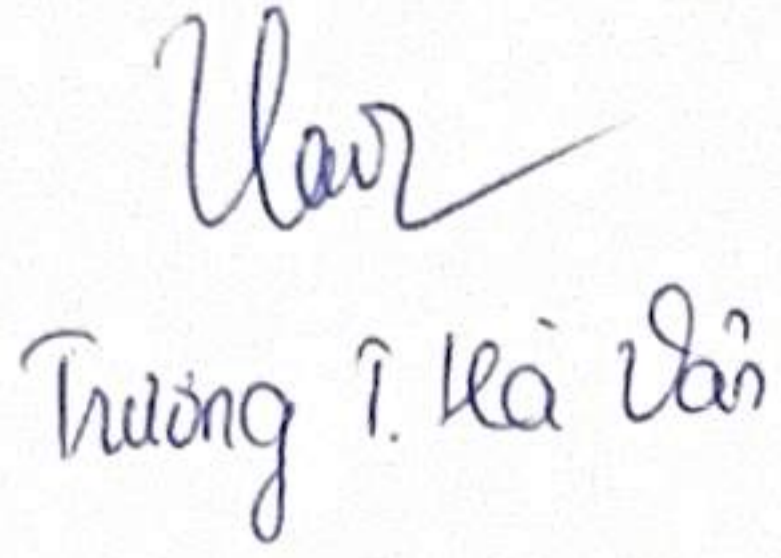 Trương T. Hà Vân